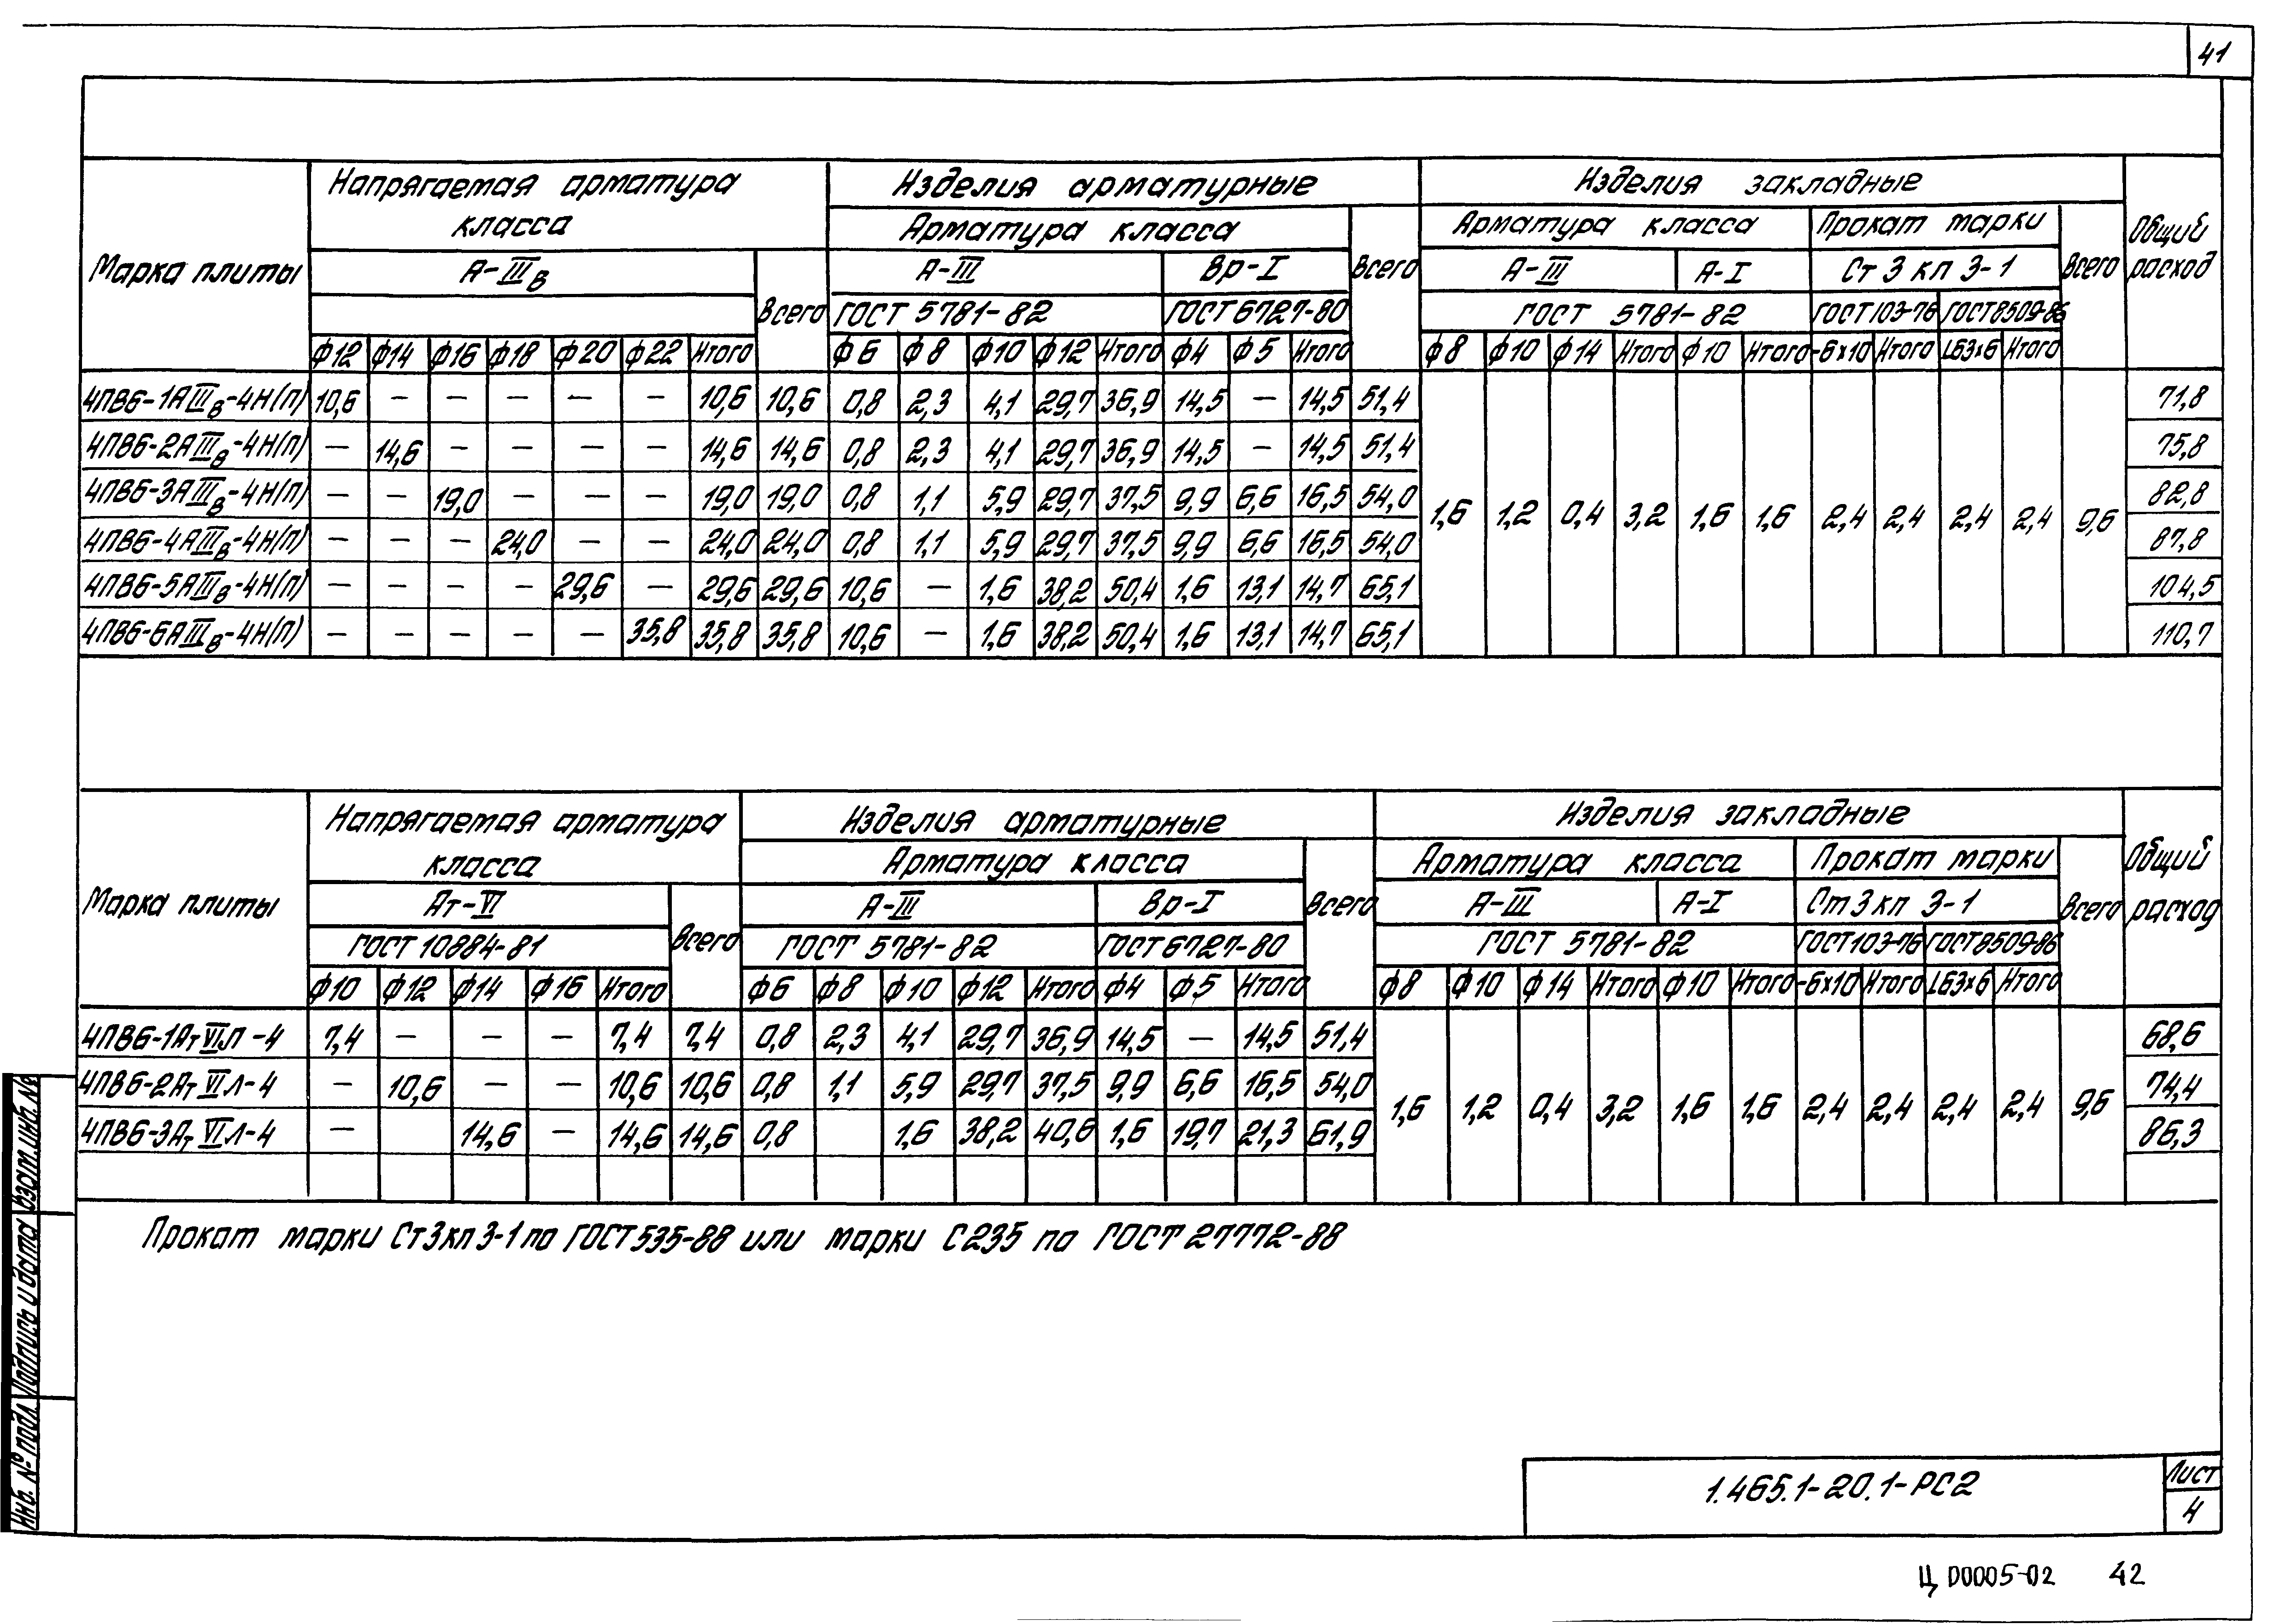 41
Напрягаемая арматура класса
Изделия арматурные
Изделия закладные
Марка плиты
Арматура класса
Всего
Арматура класса
Прокат марки
Всего
Общий расход
А-IIIв
Всего
А-III
Вр-I
А-III
А-I
Ст 3 кп 3-1
ГОСТ 5781-82
ГОСТ 6727-80
ГОСТ 5781-82
ГОСТ 103-76
ГОСТ 8509-86
ф12 ф14 ф16 ф18 ф20 ф22 Итого ф6 ф8 ф10 ф12 Итого ф4 ф5 Итого ф8 ф10 ф14 Итого ф10 Итого -6х10 Итого L63х6 Итого
4ПВ6-1АIIIв-4Н(П) 10,6 — — — — — 10,6 10,6 0,8 2,3 4,1 29,7 36,9 14,5 — 14,5 51,4 71,8
4ПВ6-2АIIIв-4Н(П) — 14,6 — — — — 14,6 14,6 0,8 2,3 4,1 29,7 36,9 14,5 — 14,5 51,4 75,8
4ПВ6-3АIIIв-4Н(П) — — 19,0 — — — 19,0 19,0 0,8 1,1 5,9 29,7 37,5 9,9 6,6 16,5 54,0 82,8
1,6 1,2 0,4 3,2 1,6 1,6 2,4 2,4 2,4 2,4 9,6
4ПВ6-4АIIIв-4Н(П) — — — 24,0 — — 24,0 24,0 0,8 1,1 5,9 29,7 37,5 9,9 6,6 16,5 54,0 87,8
4ПВ6-5АIIIв-4Н(П) — — — — 29,6 — 29,6 29,6 10,6 — 1,6 38,2 50,4 1,6 13,1 14,7 65,1 104,5
4ПВ6-6АIIIв-4Н(П) — — — — — 35,8 35,8 35,8 10,6 — 1,6 38,2 50,4 1,6 13,1 14,7 65,1 110,7
Напрягаемая арматура класса
Изделия арматурные
Изделия закладные
Марка плиты
Арматура класса
Всего
Арматура класса
Прокат марки
Всего
Общий расход
Ат-VI
Всего
А-III
Вр-I
А-III
А-I
Ст 3 кп 3-1
ГОСТ 10884-81
ГОСТ 5781-82
ГОСТ 6727-80
ГОСТ 5781-82
ГОСТ 103-76
ГОСТ 8509-86
ф10 ф12 ф14 ф16 Итого ф6 ф8 ф10 ф12 Итого ф4 ф5 Итого ф8 ф10 ф14 Итого ф10 Итого -6х10 Итого L63х6 Итого
4ПВ6-1АтVIЛ-4 7,4 — — — 7,4 7,4 0,8 2,3 4,1 29,7 36,9 14,5 — 14,5 51,4 68,6
4ПВ6-2АтVIЛ-4 — 10,6 — — 10,6 10,6 0,8 1,1 5,9 29,7 37,5 9,9 6,6 16,5 54,0 74,4
1,6 1,2 0,4 3,2 1,6 1,6 2,4 2,4 2,4 2,4 9,6
4ПВ6-3АтVIЛ-4 — 14,6 — 14,6 14,6 0,8 1,6 38,2 40,6 1,6 19,7 21,3 61,9 86,3
Прокат марки Ст3кп3-1 по ГОСТ 535-88 или марки С235 по ГОСТ 27772-88
Взам. инб. №
Подпись и дата
Инб. № подл.
1.465.1-20.1-РС2
Лист
4
Ц 00005-02 42